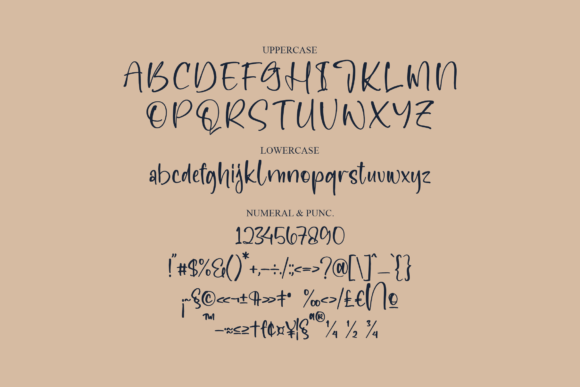 UPPERCASE
ABCDEFGHIJKLMN
OPQRSTUVWXYZ
LOWERCASE
abcdefghijklmnopqrstuvwxyz
NUMERAL & PUNC.
1234567890
!"#$%&()*+,-÷./:;<=>?@[\]^_`{}
¡~§©«¬±¶»‡• ‰<>/£€№
™–≈≤≥†ƒ¢¤¥¦§ª®¼ ½ ¾